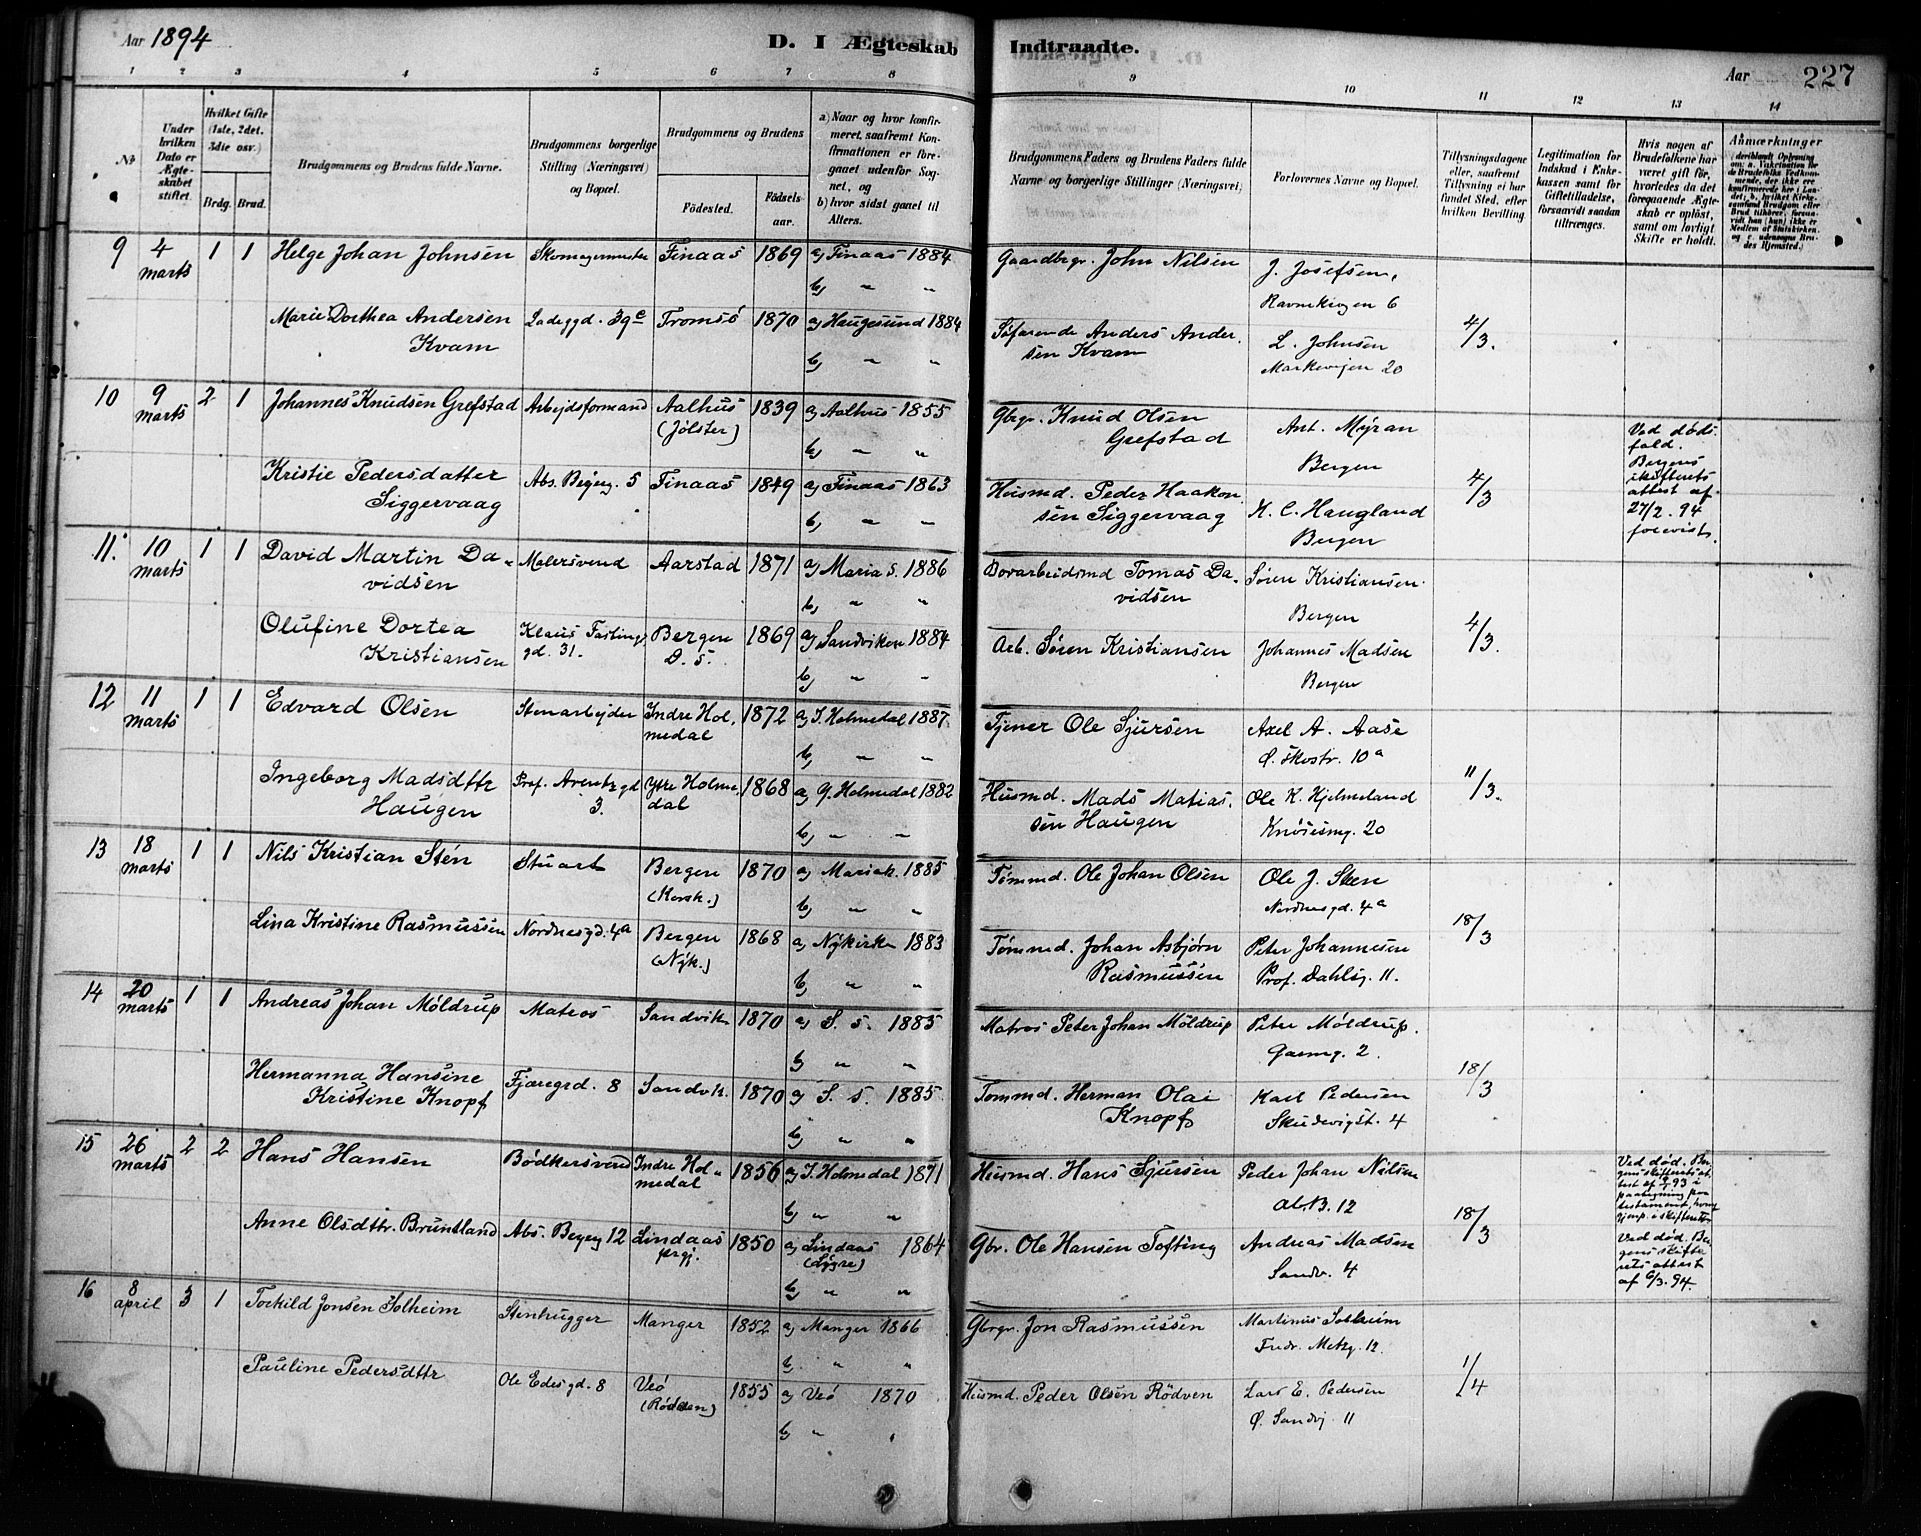 Aar 1894
D. I Ægteskab Indtraadte.
Aar 227
1 2 3 4 5 6 7 8 9 10 11 12 13 14
No.
Under hvilken Dato er Ægteskabet stiftet.
Hvilket Gifte (1ste, 2det, 3die osv.)
Brdg. Brud.
Brudgommens og Brudens fulde Navne.
Brudgommens borgerlige Stilling (Næringsvei) og Bopæl.
Brudgommens og Brudens
Fødested. Fødselsaar.
a) Naar og hvor konfirmeret, saafremt Konfirmationen er foregaaet udenfor Sognet, og
b) hvor sidst gaaet til Alters.
Brudgommens Faders og Brudens Faders fulde Navne og borgerlige Stillinger (Næringsvei)
Forlovernes Navne og Bopæl.
Tillysningsdagene eller, saafremt Tillysning ei har fundet Sted, efter hvilken Bevilling.
Legitimation for Indskud i Enkekassen samt for Giftetilladelse, forsaavidt saadan tiltrænges.
Hvis nogen af Brudefolkene har været gift før, hvorledes da det foregaaende Ægteskab er opløst, samt om lovligt Skifte er holdt.
Anmærkninger
9 4 marts 1 1 Helge Johan Johnsen Skomagermester Finaas 1869 a) Finaas 1884 Gaardbrgr. John Nilsen J. Josefsen,
b) " " 6
Marie Dorthea Andersen Ladeggd. 39c Tromsö 1870 a) Haugesund 1884 Söfarende Anders Ander- L. Johnsen 4/3.
Kvam b) " " sen Kvam Markevejen 20
10 9 marts 2 1 Johannes Knudsen Grefstad Arbejdsformand Aalhus 1839 a) Aalhus 1855 Gbrgr. Knud Olsen Ant. Myran Ved døds-
(Jølster) b) " " Grefstad Bergen fald. Bergens
Kristie Pedersdatter Abs. Beyerg. 5 Finaas 1849 a) Finaas 1863 Husmd. Peder Haakon- 4/3 skifterets attest af
Siggervaag b) " " sen Siggervaag K. C. Haugland 27/2. 94
Bergen forevist.
11. 10 marts 1 1 David Martin Da- Malersvend Aarstad 1871 a) Maria s. 1886 Tomas Da- Sören Kristiansen
vidsen b) " " vidsen Bergen
Olufine Dortea Klaus Fasting- Bergen 1869 a) Sandviken 1884 Arb. Søren Kristiansen Johannes Madsen 4/3.
Kristiansen gd. 31. D. s. b) " " Bergen
12 11 marts 1 1 Edvard Olsen Stenarbejder Indre Hol- 1872 a) I. Holmedal 1887 Tjener Ole Sjursen Axel A. Aase
medal b) " " Ø. Skostr. 10a
Ingeborg Madsdttr Prof. Arentz gd Ytre Holme- 1868 a) Y. Holmedal 1882 Husmd. Mads Matias- Ole K. Hjelmeland 11/3.
Haugen 3. dal b) " " sen Haugen Knösesmg. 20
13 18 marts 1 1 Nils Kristian Stén Stuart Bergen 1870 a) Mariak. 1885 Tömmd. Ole Johan Olsen Ole J. Steen
(Korsk.) b) " " Nordnesgd. 4a
Lina Kristine Rasmussen Nordnesgd. 4a Bergen 1868 a) Nykirke 1883 Tømmd. Johan Asbjørn Peter Johannesen 18/3
(Nyk.) b) " " Rasmussen Prof. Dahlsg. 11.
14 20 marts 1 1 Andreas Johan Möldrup Matros Sandvik. 1870 a) S. s. 1885 Matros Peter Johan Möldrup Peter Möldrup.
b) " " 2.
Hermanna Hansine Fjæregrd. 8 Sandvik. 1870 a) S. s. 1885 Tømmd. Herman Olai Karl Pedersen 18/3
Kristine Knopf b) " " Knopf Skudevigst. 4
15 26 marts 2 2 Hans Hansen Bødkersvend Indre Hol- 1856 a) I. Holmedal 1871 Husmd. Hans Sjursen Peder Johan Nilsen Ved død. Ber-
medal b) " " Ab. B. 12 gens skifterets at-
test af
Anne Olsdttr. Bruntland Abs. Beyerg 12 Lindaas 1850 a) Lindaas 1864 Gbr. Ole Hansen Tofting Andreas Madsen 18/3 Ved død. Ber-
prgj. (Lygre) Sandv. 4 gens skifte-
b) " " rets attest
af 6/3. 94.
16 8 april 3 1 Torkild Jonsen Solheim Stenhugger Manger 1852 a) Manger 1866 Gbrgr. Jon Rasmussen Martinus Solheim
b) " " Fredr. Meltzg. 12.
Pauline Pedersdttr Ole Edesgd. 8 Veö 1855 a) Veö 1870 Husmd. Peder Olsen Rödven Lars E. Pedersen 1/4
(Rödven) b) " " Ø. Sandvj 11